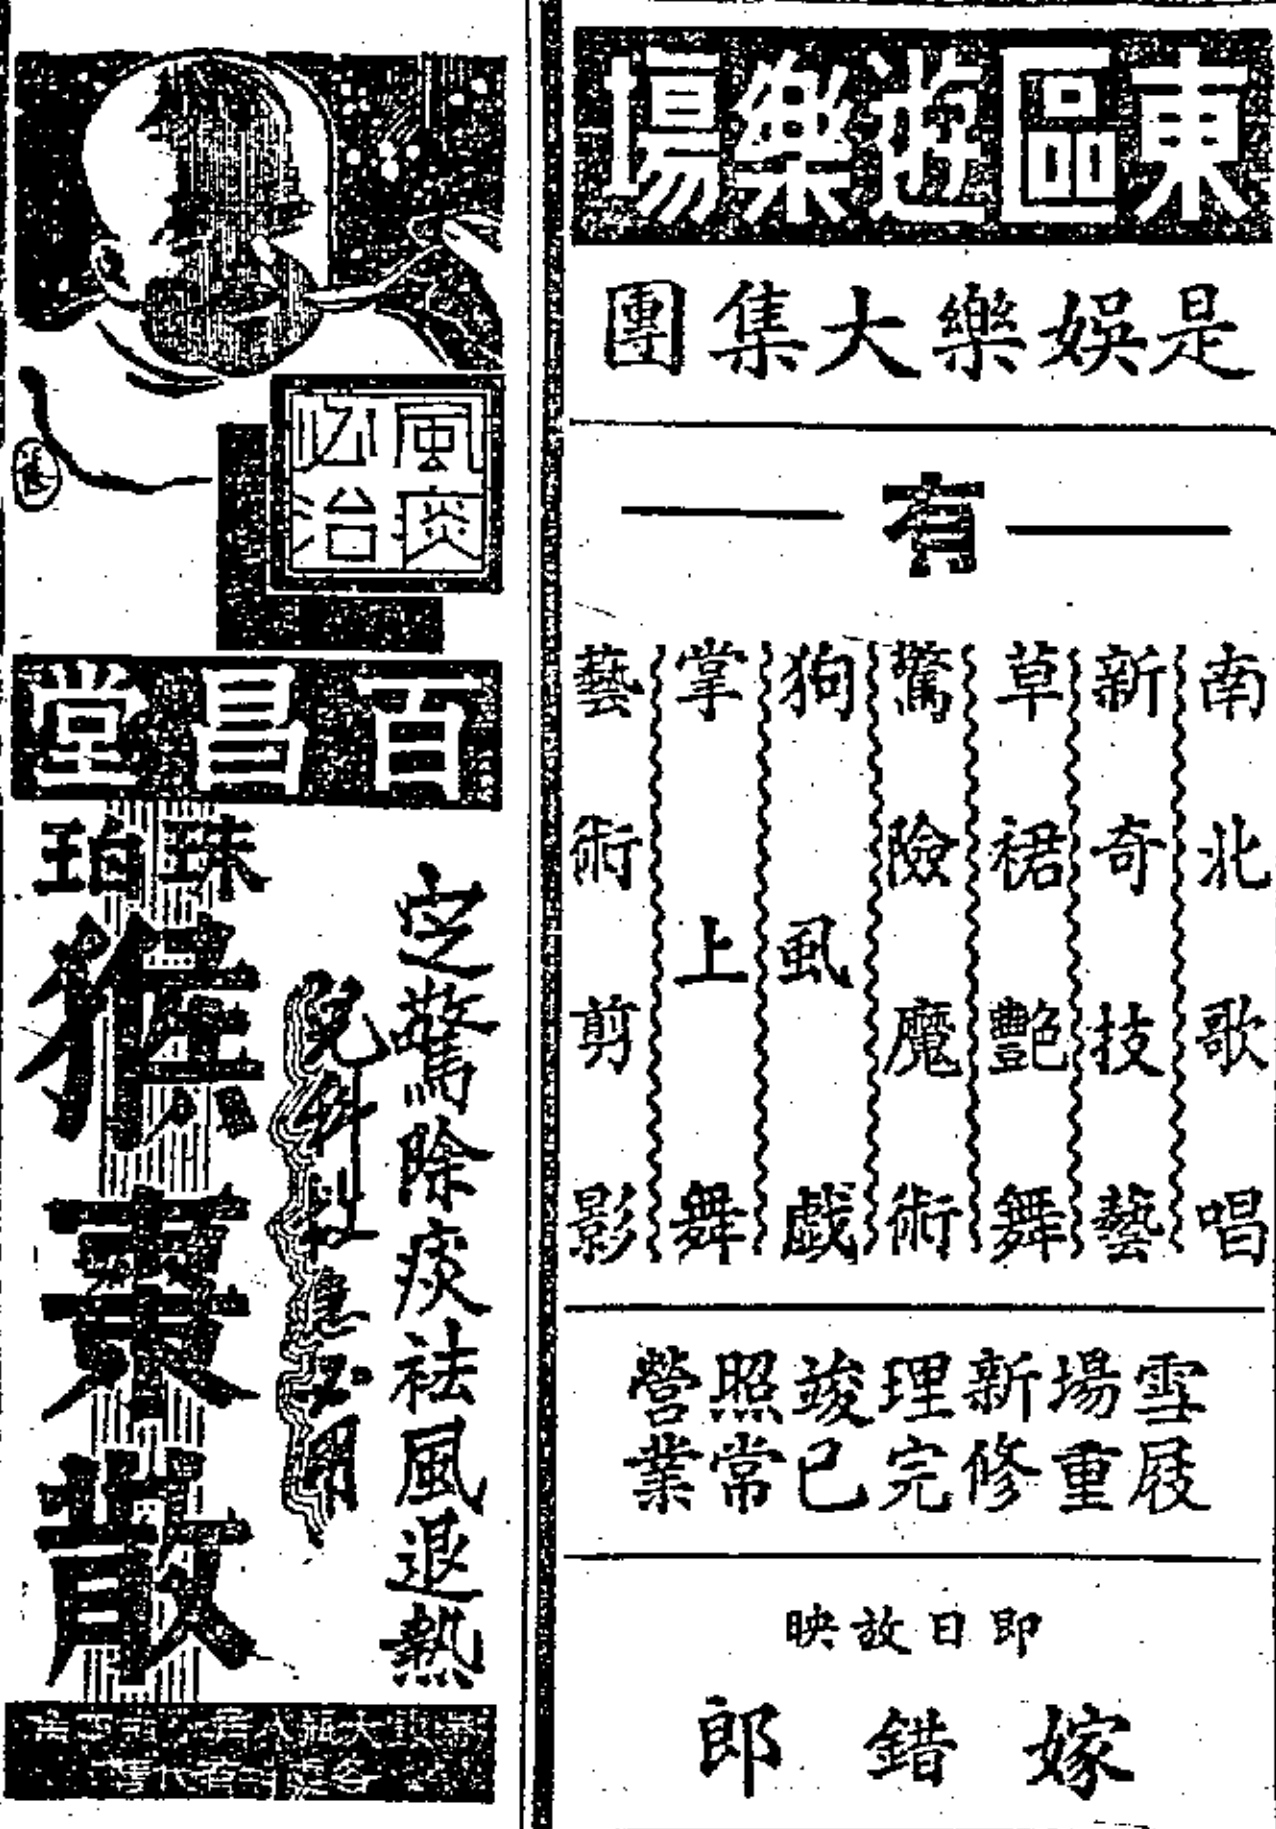 東區遊樂場
是娛樂大集團
有
南北歌唱
新奇技藝
草裙艷舞
驚險魔術
狗虱戯
掌上舞
藝術剪影
雪屐
場重
新修
理完
竣已
照常
營業
即日放映
嫁錯郎
風痰
必治
百昌堂
珠珀
猴棗散
定驚除痰祛風退熱
兒科